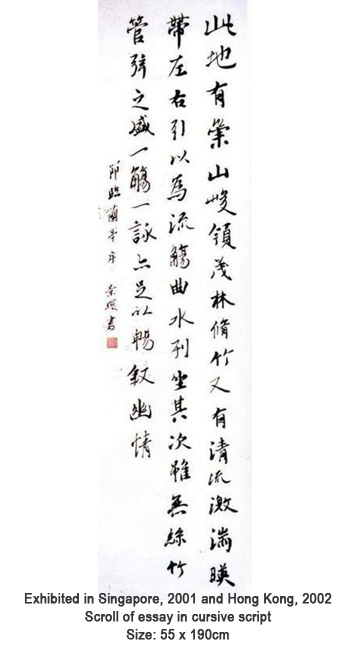 此地有崇山峻領茂林脩竹又有清流激湍暎
帶左右引以為流觴曲水列坐其次雖無絲竹
管弦之盛一觴一詠亦足以暢叙幽情
節臨蘭亭序 書
Exhibited in Singapore, 2001 and Hong Kong, 2002
Scroll of essay in cursive script
Size: 55 x 190cm